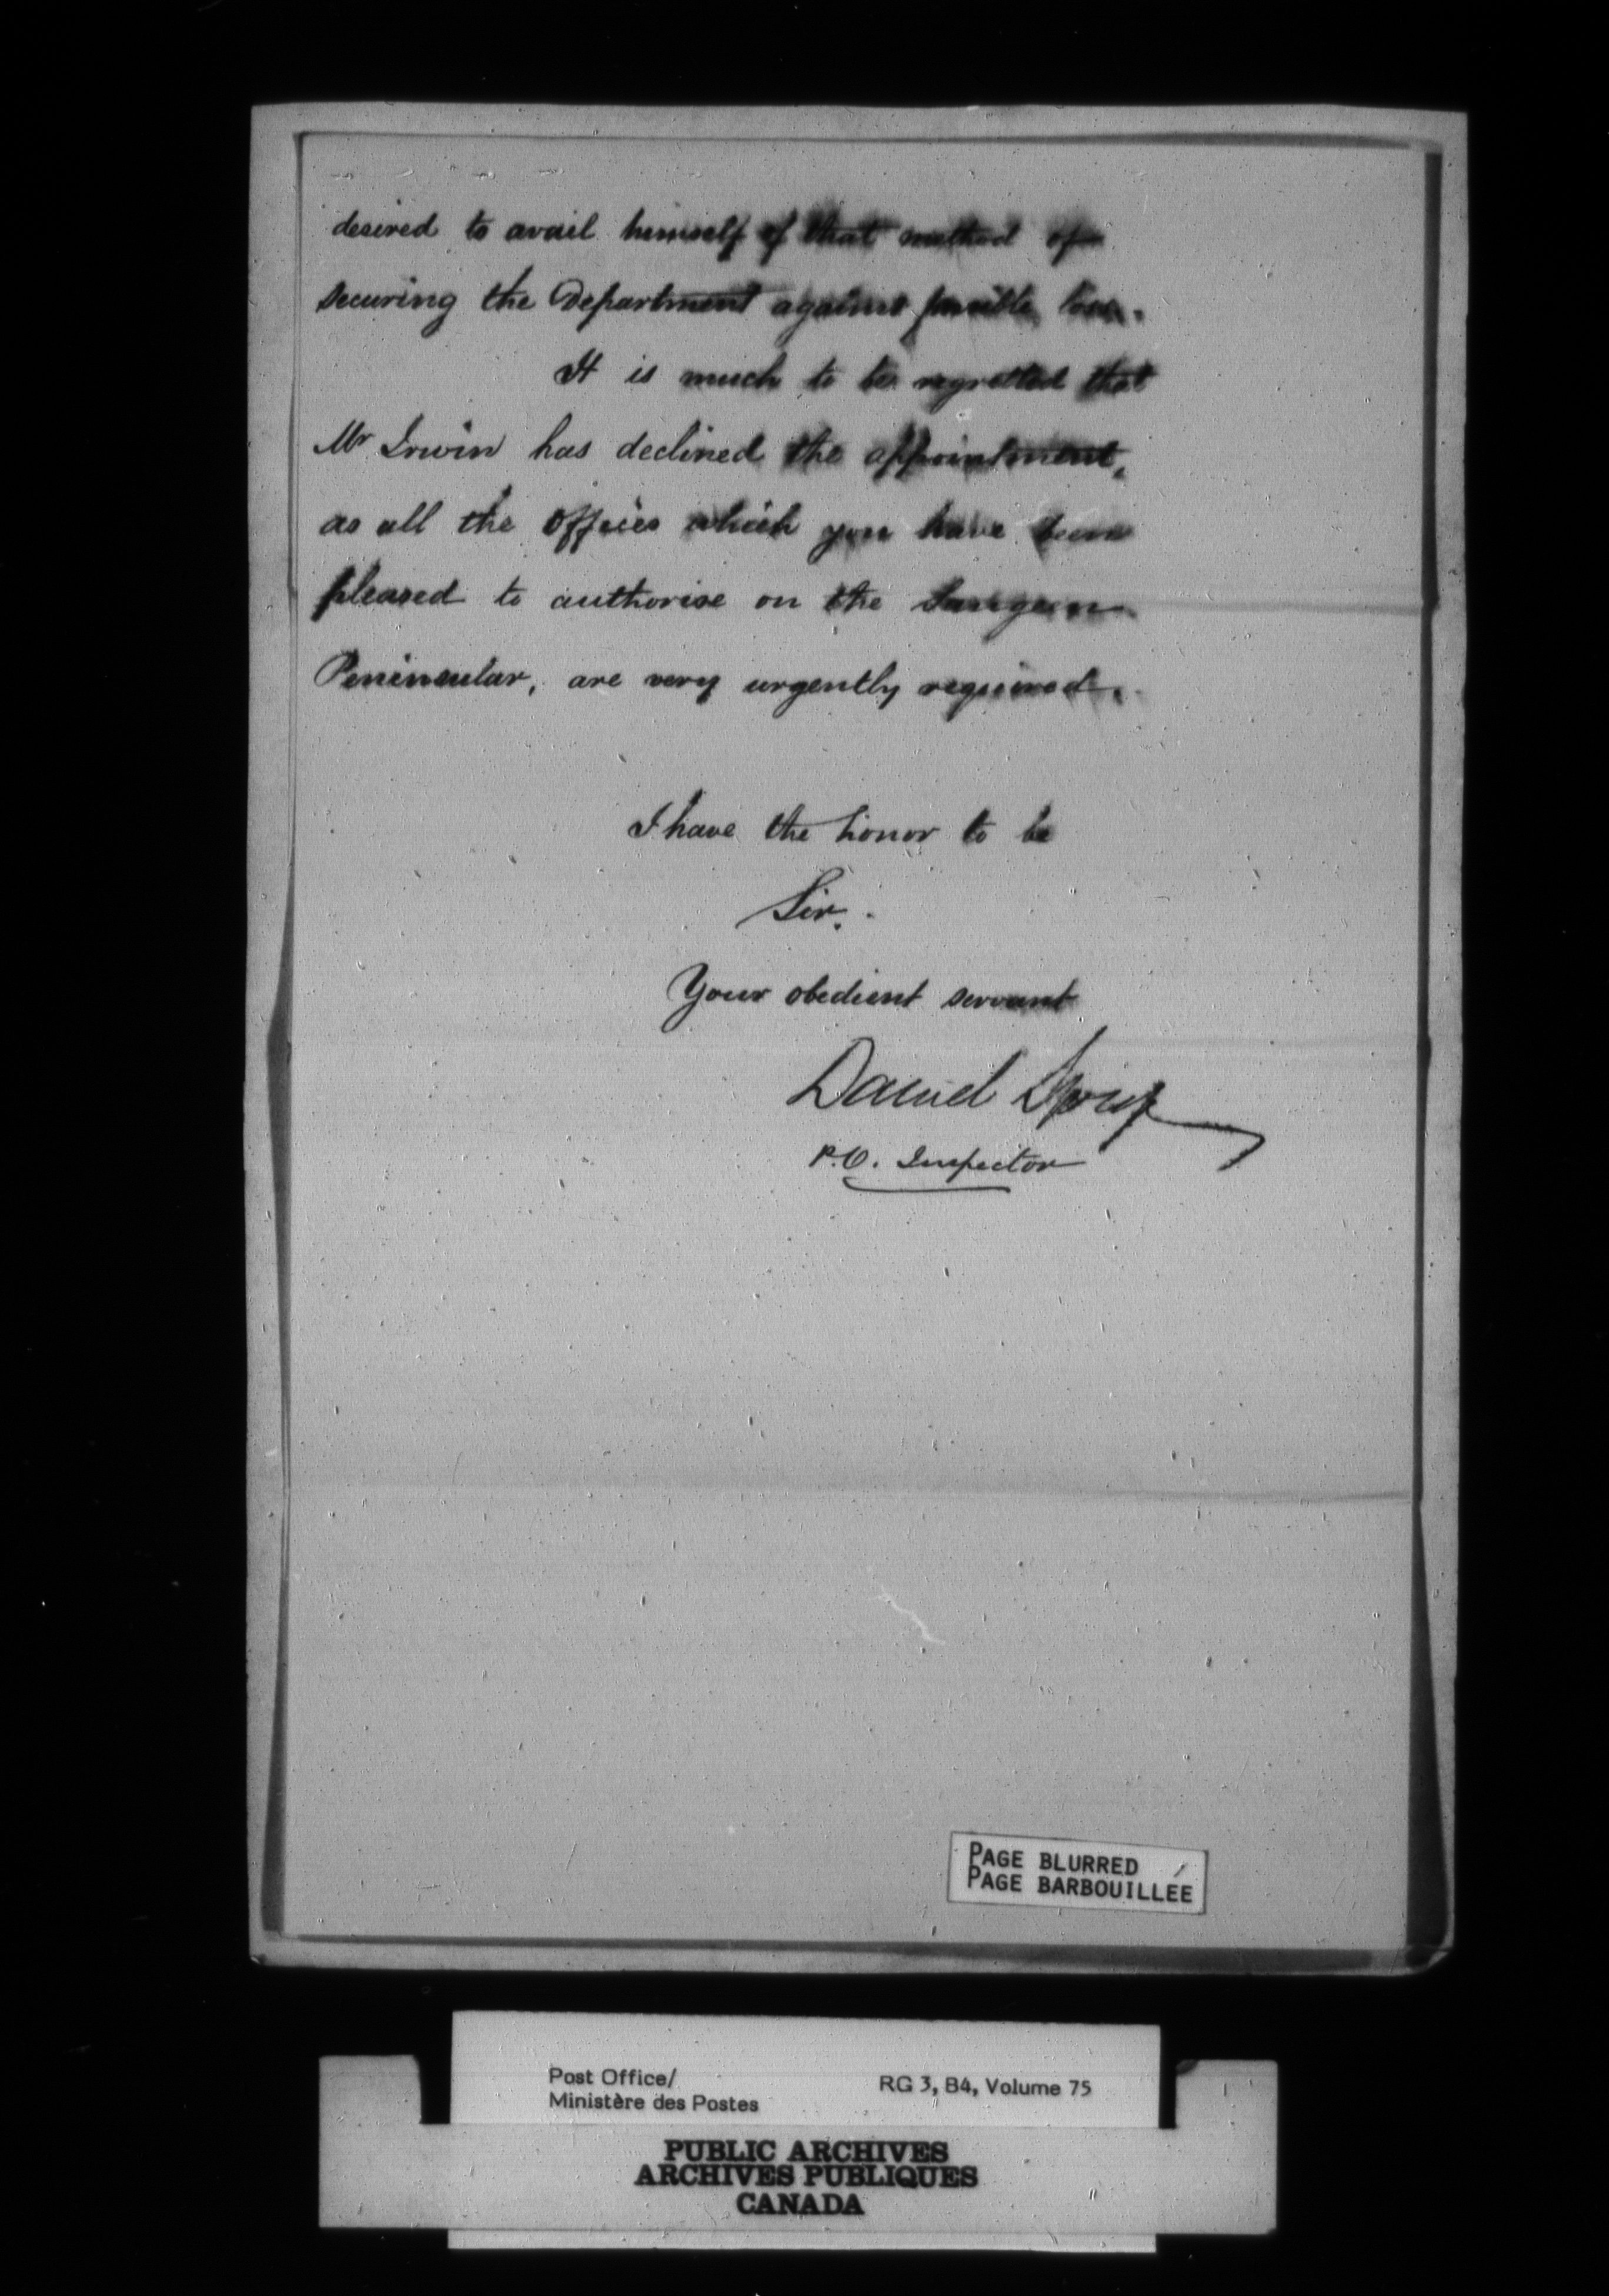 desired to avail himself of that method of
securing the Department against possible loss.
It is much to be regretted that
Mr Irwin has declined the appointment,
as all the offices which you have been
pleased to authorise on the Saugeen
Peninsular, are very urgently required.
I have the honor to be
Sir.
Your obedient servant
Daniel Spry
P.O. Inspector
PAGE BLURRED
PAGE BARBOUILLÉE
Post Office/
Ministère des Postes
RG 3, B4, Volume 75
PUBLIC ARCHIVES
ARCHIVES PUBLIQUES
CANADA